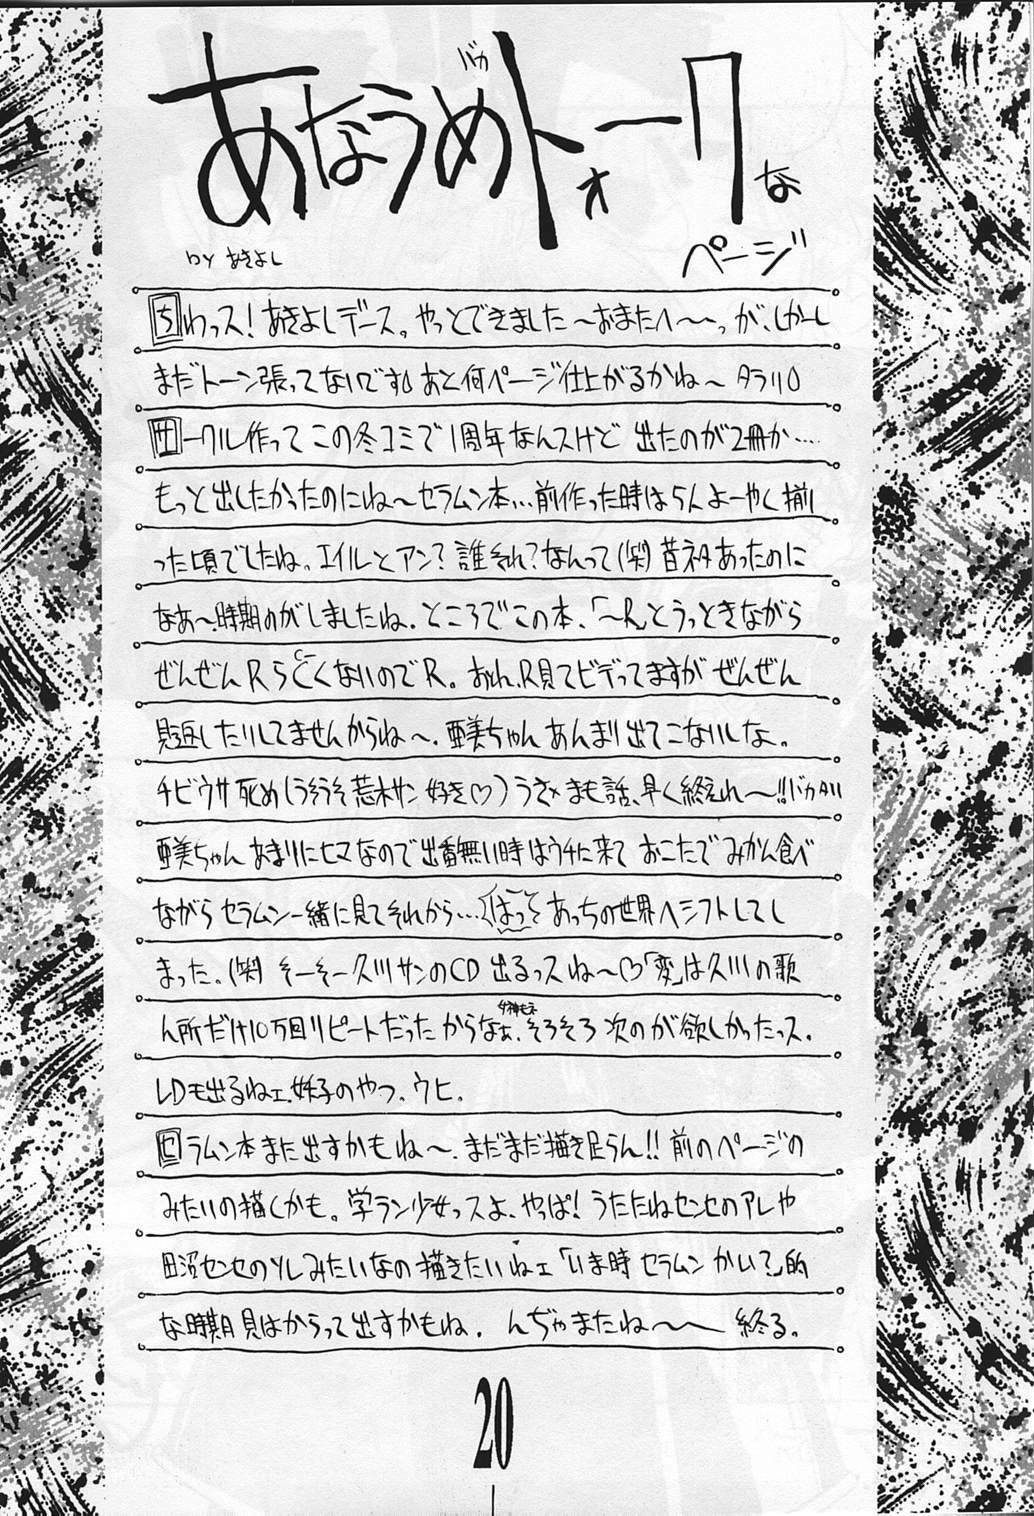 あなうめバカトォークな
ページ
by あきよし
ちわっス！あきよしデース。やっとできました〜おまたへ〜〜っが、しかーし
まだトーン張ってないです あと何ページ仕上がるかね〜 タラリ
サークル作ってこの冬コミで1周年なんスけど 出たのが2冊か…
もっと出したかったのにね〜セラムン本…前作った時は5人よーやく揃
った頃でしたね。エイルとアン？誰それ？なんって(笑) 昔ネタあったのに
なあ〜、時期のがしましたね。ところでこの本、「〜R」とうっときながら
ぜんぜんRらしくないのでR。おれ、R見てビデってますが ぜんぜん
見返したりしてませんからね〜、亜美ちゃん あんまり出てこないしな。
チビウサ死め(うそうそ荒木サン 好き♡) うさ×まも話、早く終えれ〜!!バカタリ
亜美ちゃん あまりにヒマなので出番無い時はウチに来て おこたで みかん食べ
ながら セラムン一緒に見てそれから…はっ あっちの世界へシフトしてし
まった。(笑) そーそー久川サンのCD 出るっスね〜♡「変」は久川の歌
ん所だけ10万回リピートだった からなぁ、そろそろ 次のが欲しかったっス。
LDも出るねェ、妖子のやつ。ウヒ。
セラムン本また出すかもね〜、まだまだ描き足らん!! 前のページの
みたいの描くかも。学ラン少女っスよ、やっぱ！うたたねセンセのアレや
田沼センセのソレみたいなの描きたいねェ「いま時 セラムン かい？」的
な時期 見はからって出すかもね。 んぢゃまたね〜〜 終る。
20